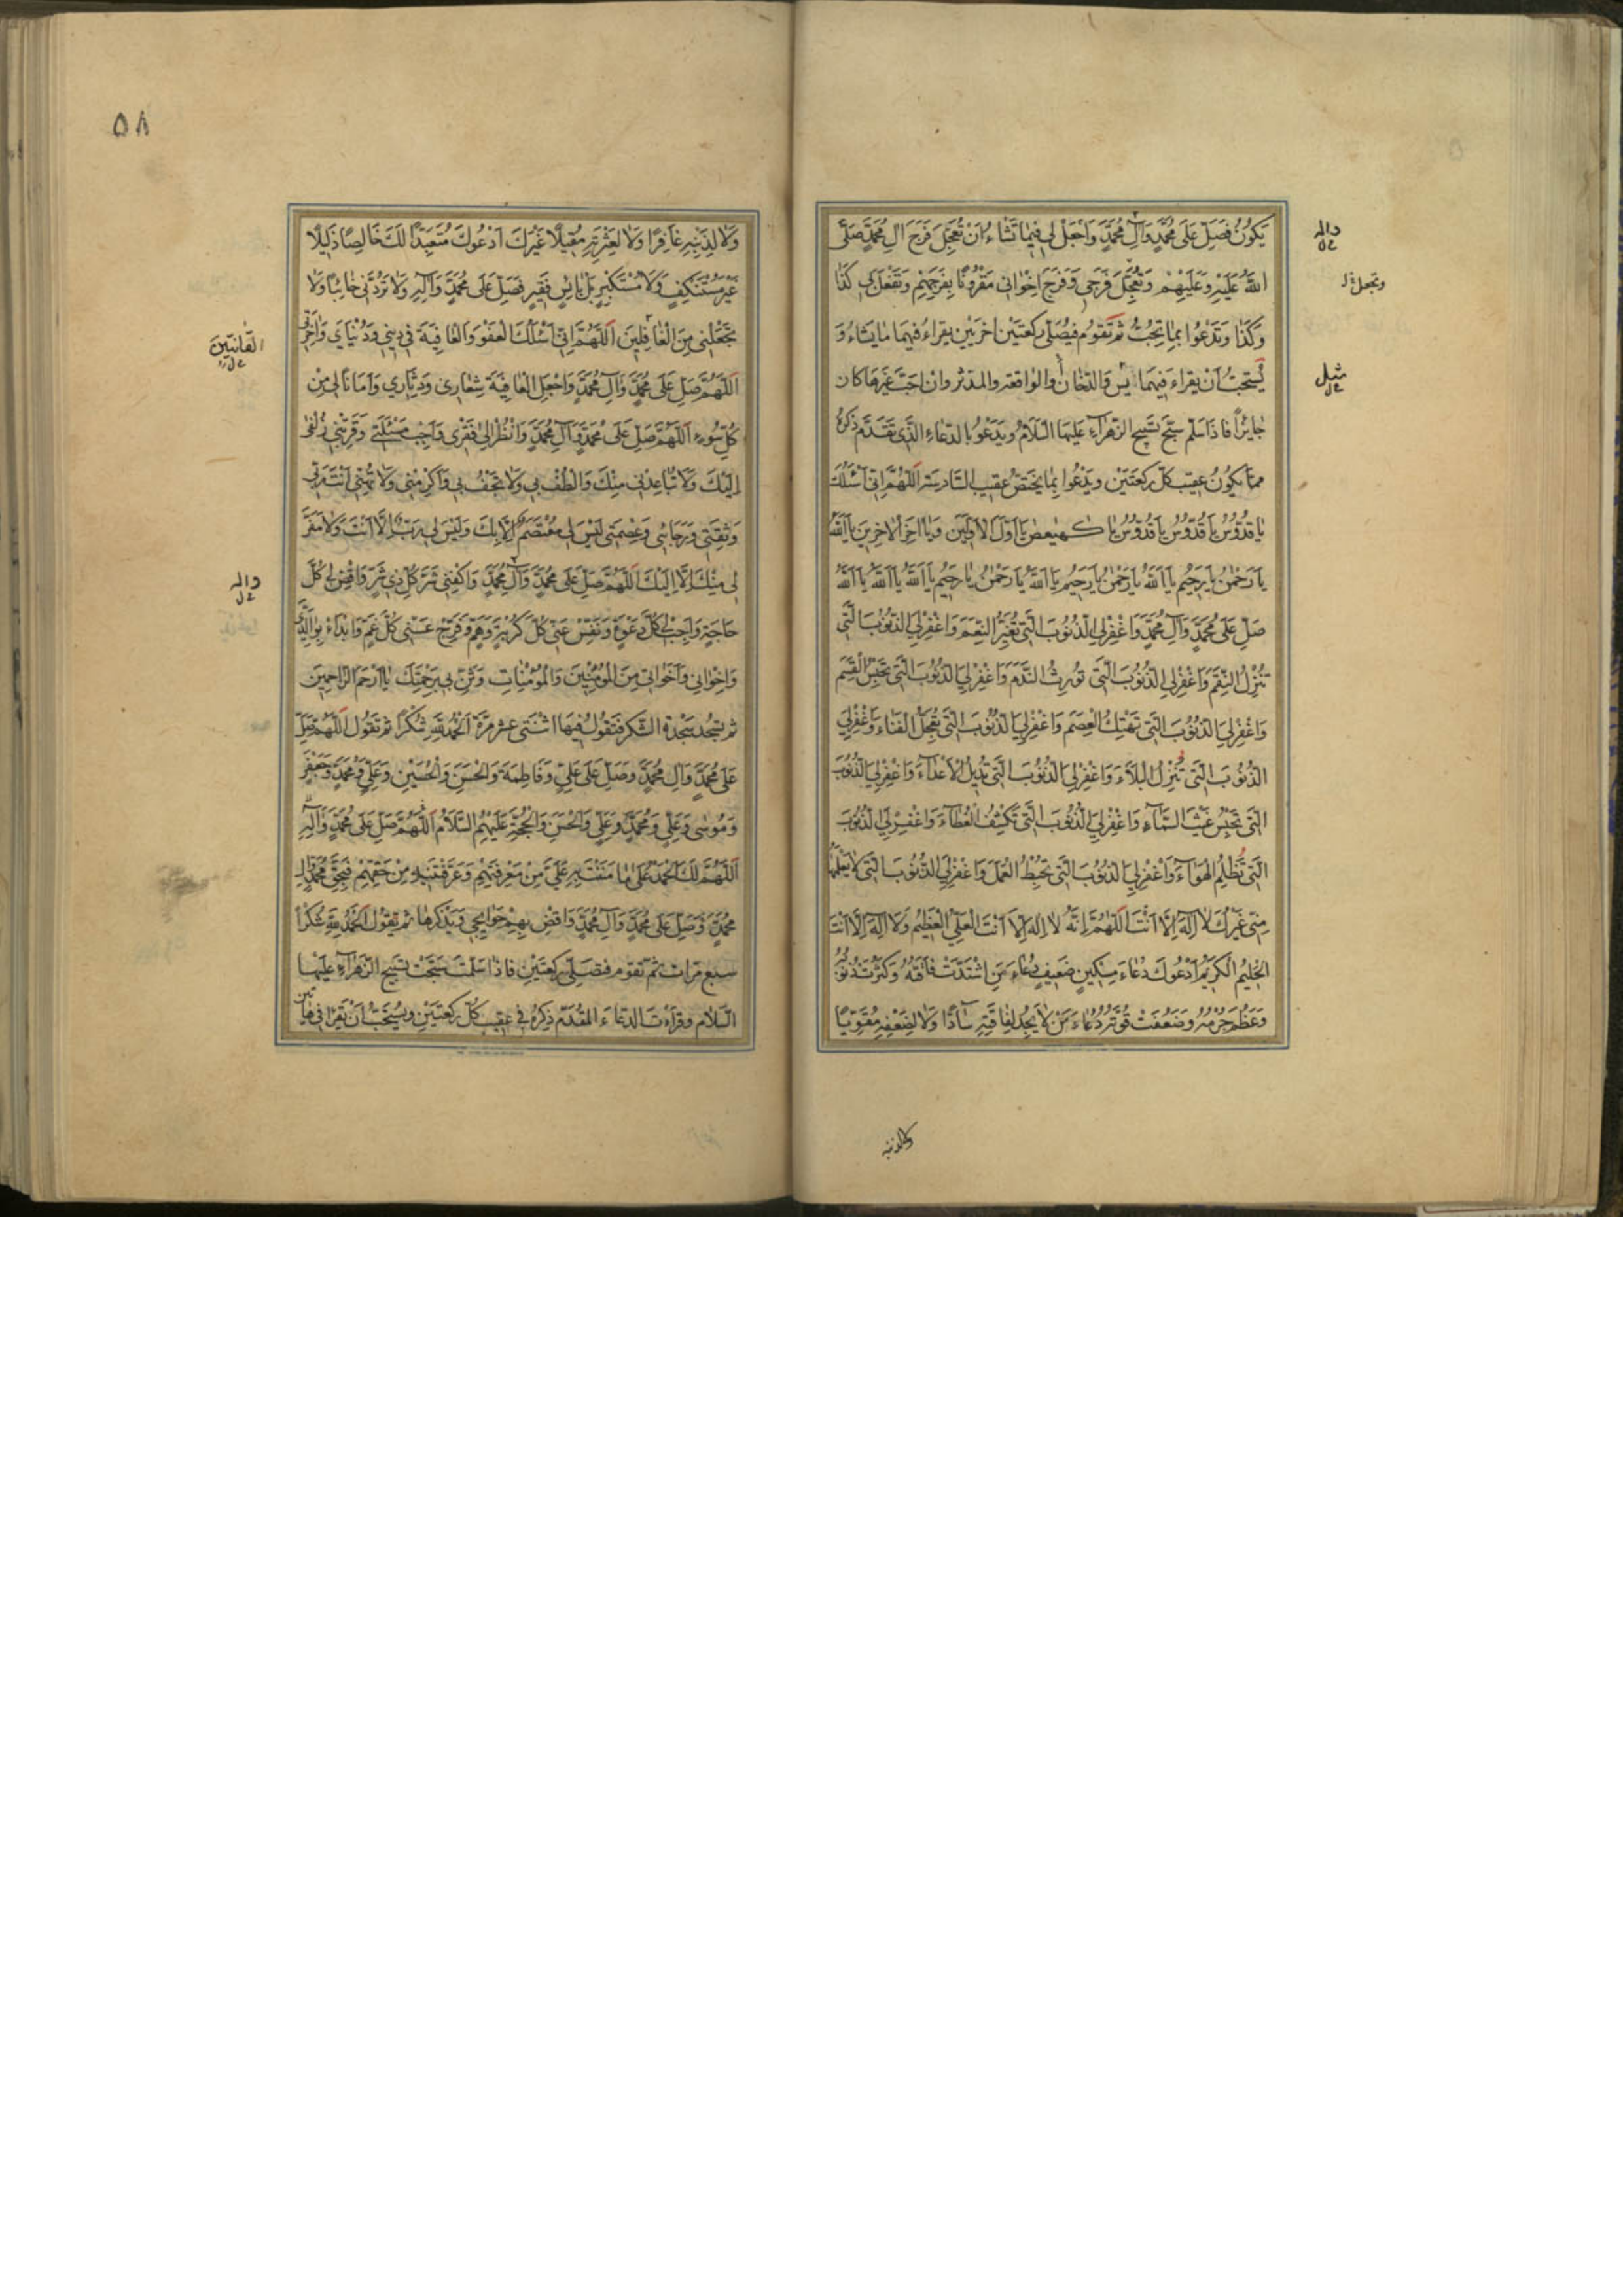 يَكُونُ فَصَلِّ عَلَى مُحَمَّدٍ وَآلِ مُحَمَّدٍ وَاجْعَلْ لِي فِيمَا تَشَاءُ اَنْ تُعَجِّلَ فَرَجَ آلِ مُحَمَّدٍ صَلَّى
اللهُ عَلَيْهِ وَعَلَيْهِمْ وَتُعَجِّلَ فَرَجِي وَفَرَجَ اِخْوَانِي مَقْرُونًا بِفَرَجِهِمْ وَتَفْعَلَ بِي كَذَا
وَكَذَا وَتَدْعُوا بِمَا تُحِبُّ ثُمَّ تَقُومُ فَيُصَلِّي رَكْعَتَيْنِ اُخْرَيَيْنِ يقراءُ فِيهِمَا مَا يَشَاءُ وَ
يُسْتَحَبُّ اَنْ يقراءَ فِيهِمَا يس وَالدّخَان والوَاقعة والمدّثر وان اَحَبَّ غَيْرَهَا كان
جَائِزًا فَاذَا سَلَّمَ سَبَّحَ تَسْبِيحَ الزهرآءِ عَلَيْهَا السَّلَامُ وَيَدْعُو بالدّعَاءِ الَّذِي تَقَدَّمَ ذِكْرُهُ
مِمَّا يَكُونُ عَقِيبَ كُلِّ رَكْعَتَيْنِ وَيَدْعُوا بِمَا يَخْتَصُّ عَقِيبَ السَّادِسَةِ اَللّٰهُمَّ اِنِّي اَسْئَلُكَ
يَا قُدُّوسُ يَا قُدُّوسُ يَا قُدُّوسُ يَا كهيعص يَا اَوَّلَ الْاَوَّلِينَ وَيَا آخِرَ الْاخِرِينَ يَا اَللهُ
يَا رَحْمٰنُ يَا رَحِيمُ يَا اَللهُ يَا رَحْمٰنُ يَا رَحِيمُ يَا اَللهُ يَا رَحْمٰنُ يَا رَحِيمُ يَا اَللهُ يَا اَللهُ يَا اَللهُ
صَلِّ عَلَى مُحَمَّدٍ وَآلِ مُحَمَّدٍ وَاغْفِرْ لِيَ الذُّنُوبَ الَّتِي تُغَيِّرُ النِّعَمَ وَاغْفِرْ لِيَ الذُّنُوبَ الَّتِي
تُنْزِلُ النِّقَمَ وَاغْفِرْ لِيَ الذُّنُوبَ الَّتِي تُورِثُ النَّدَمَ وَاغْفِرْ لِيَ الذُّنُوبَ الَّتِي تَحْبِسُ الْقِسَمَ
وَاغْفِرْ لِيَ الذُّنُوبَ الَّتِي تَهْتِكُ الْعِصَمَ وَاغْفِرْ لِيَ الذُّنُوبَ الَّتِي تُعَجِّلُ الْفَنَاءَ وَاغْفِرْ لِيَ
الذُّنُوبَ الَّتِي تُنْزِلُ الْبَلَاءَ وَاغْفِرْ لِيَ الذُّنُوبَ الَّتِي تُدِيلُ الْاَعْدَاءَ وَاغْفِرْ لِيَ الذُّنُوبَ
الَّتِي تَحْبِسُ غَيْثَ السَّمَآءِ وَاغْفِرْ لِيَ الذُّنُوبَ الَّتِي تَكْشِفُ الْغِطَآءَ وَاغْفِرْ لِيَ الذُّنُوبَ
الَّتِي تُظْلِمُ الْهَوَآءَ وَاغْفِرْ لِيَ الذُّنُوبَ الَّتِي تُحْبِطُ الْعَمَلَ وَاغْفِرْ لِيَ الذُّنُوبَ الَّتِي لَا يَعْلَمُهَا
مِنِّي غَيْرُكَ لَا اِلٰهَ اِلَّا اَنْتَ اَللّٰهُمَّ اِنَّهُ لَا اِلٰهَ اِلَّا اَنْتَ الْعَلِيُّ الْعَظِيمُ وَلَا اِلٰهَ اِلَّا اَنْتَ
الْحَلِيمُ الْكَرِيمُ اَدْعُوكَ دُعَاءَ مِسْكِينٍ ضَعِيفٍ دُعَاءَ مَنِ اشْتَدَّتْ فَاقَتُهُ وَكَثُرَتْ ذُنُوبُهُ
وَعَظُمَ جُرْمُهُ وَضَعُفَتْ قُوَّتُهُ دُعَاءَ مَنْ لَا يَجِدُ لِفَاقَتِهِ سَادًّا وَلَا لِضَعْفِهِ مُقَوِّيًا
وآله
وتجعل
مثل
ولا لذنبه
٥٨
وَلَا لِذَنْبِهِ غَافِرًا وَلَا لِعَثْرَتِهِ مُقِيلًا غَيْرَكَ اَدْعُوكَ مُتَعَبِّدًا لَكَ خَالِصًا ذَلِيلًا
غَيْرَ مُسْتَنْكِفٍ وَلَا مُسْتَكْبِرٍ بَلْ بَائِسٍ فَقِيرٍ فَصَلِّ عَلَى مُحَمَّدٍ وَآلِهِ وَلَا تَرُدَّنِي خَائِبًا وَلَا
تَجْعَلْنِي مِنَ الْغَافِلِينَ اَللّٰهُمَّ اِنِّي اَسْئَلُكَ الْعَفْوَ وَالْعَافِيَةَ فِي دِينِي وَدُنْيَايَ وَآخِرَتِي
اَللّٰهُمَّ صَلِّ عَلَى مُحَمَّدٍ وَآلِ مُحَمَّدٍ وَاجْعَلِ الْعَافِيَةَ شِعَارِي وَدِثَارِي وَاَمَانًا لِي مِنْ
كُلِّ سُوءٍ اَللّٰهُمَّ صَلِّ عَلَى مُحَمَّدٍ وَآلِ مُحَمَّدٍ وَانْظُرْ اِلَى فَقْرِي وَاَجِبْ مَسْئَلَتِي وَقَرِّبْنِي زُلْفَى
اِلَيْكَ وَلَا تُبَاعِدْنِي مِنْكَ وَالْطُفْ بِي وَلَا تَجْفُ بِي وَاَكْرِمْنِي وَلَا تُهِنِّي اَنْتَ رَبِّي
وَثِقَتِي وَرَجَائِي وَعِصْمَتِي لَيْسَ لِي مُعْتَصَمٌ اِلَّا بِكَ وَلَيْسَ لِي رَبٌّ اِلَّا اَنْتَ وَلَا مَفَرَّ
لِي مِنْكَ اِلَّا اِلَيْكَ اَللّٰهُمَّ صَلِّ عَلَى مُحَمَّدٍ وَآلِ مُحَمَّدٍ وَاكْفِنِي شَرَّ كُلِّ ذِي شَرٍّ وَاقْضِ لِي كُلَّ
حَاجَةٍ وَاَجِبْ لِي كُلَّ دَعْوَةٍ وَنَفِّسْ عَنِّي كُلَّ كُرْبَةٍ وَهَمٍّ وَفَرِّجْ عَنِّي كُلَّ غَمٍّ وَابْدَاءْ بِوَالِدَيَّ
وَاِخْوَانِي وَاَخَوَاتِي مِنَ الْمُؤْمِنِينَ وَالْمُؤْمِنَاتِ وَثَنِّ بِي بِرَحْمَتِكَ يَا اَرْحَمَ الرَّاحِمِينَ
ثم تسجُد سَجْدةَ الشكر فتقولُ فيها اثْنَتَى عشر مَرَّةَ اَلْحَمْدُ لِلّٰهِ شُكْرًا ثم تَقُول اَللّٰهُمَّ صَلِّ
عَلَى مُحَمَّدٍ وَآلِ مُحَمَّدٍ وَصَلِّ عَلَى عَلِيٍّ وَفَاطِمَةَ وَالْحَسَنِ وَالْحُسَيْنِ وَعَلِيٍّ وَمُحَمَّدٍ وَجَعْفَرٍ
وَمُوسَى وَعَلِيٍّ وَمُحَمَّدٍ وَعَلِيٍّ وَالْحَسَنِ وَالْحُجَّةِ عَلَيْهِمُ السَّلَامُ اَللّٰهُمَّ صَلِّ عَلَى مُحَمَّدٍ وَآلِهِ
اَللّٰهُمَّ لَكَ الْحَمْدُ عَلَى مَا مَنَنْتَ بِهِ عَلَيَّ مِنْ مَعْرِفَتِهِمْ وَعَرَّفْتَنِيهِ مِنْ حَقِّهِمْ فَبِحَقِّ مُحَمَّدٍ وَآلِ
مُحَمَّدٍ وَصَلِّ عَلَى مُحَمَّدٍ وَآلِ مُحَمَّدٍ وَاقْضِ بِهِمْ حَوَائِجِي وَيَذْكرهَا ثم تَقُول اَلْحَمْدُ لِلّٰهِ شُكْرًا
سبع مرّات ثم تَقوم فَتُصَلِّي رَكْعَتَيْنِ فاذا سَلَّمْتَ سَبَّحْتَ تَسْبِيحَ الزَّهْرَآءِ عَلَيْهَا
السّلام وقرأت الدعاء المقدّم ذِكرُهُ في عقيب كلّ ركعتَيْن ويُسْتَحَبُّ اَنْ تَقْرَا في هَاتين
القانتين
وآله